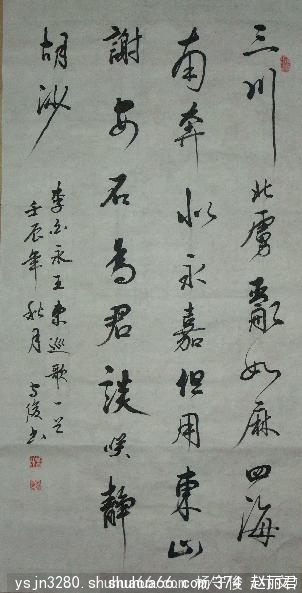 三川北虏乱如麻四海
南奔似永嘉但用东山
謝安石為君談咲静
胡沙
李白永王東巡歌一首
壬辰年秋月守俊书
ysjn3280.shuhua6666.com 杨守俊 赵丽君